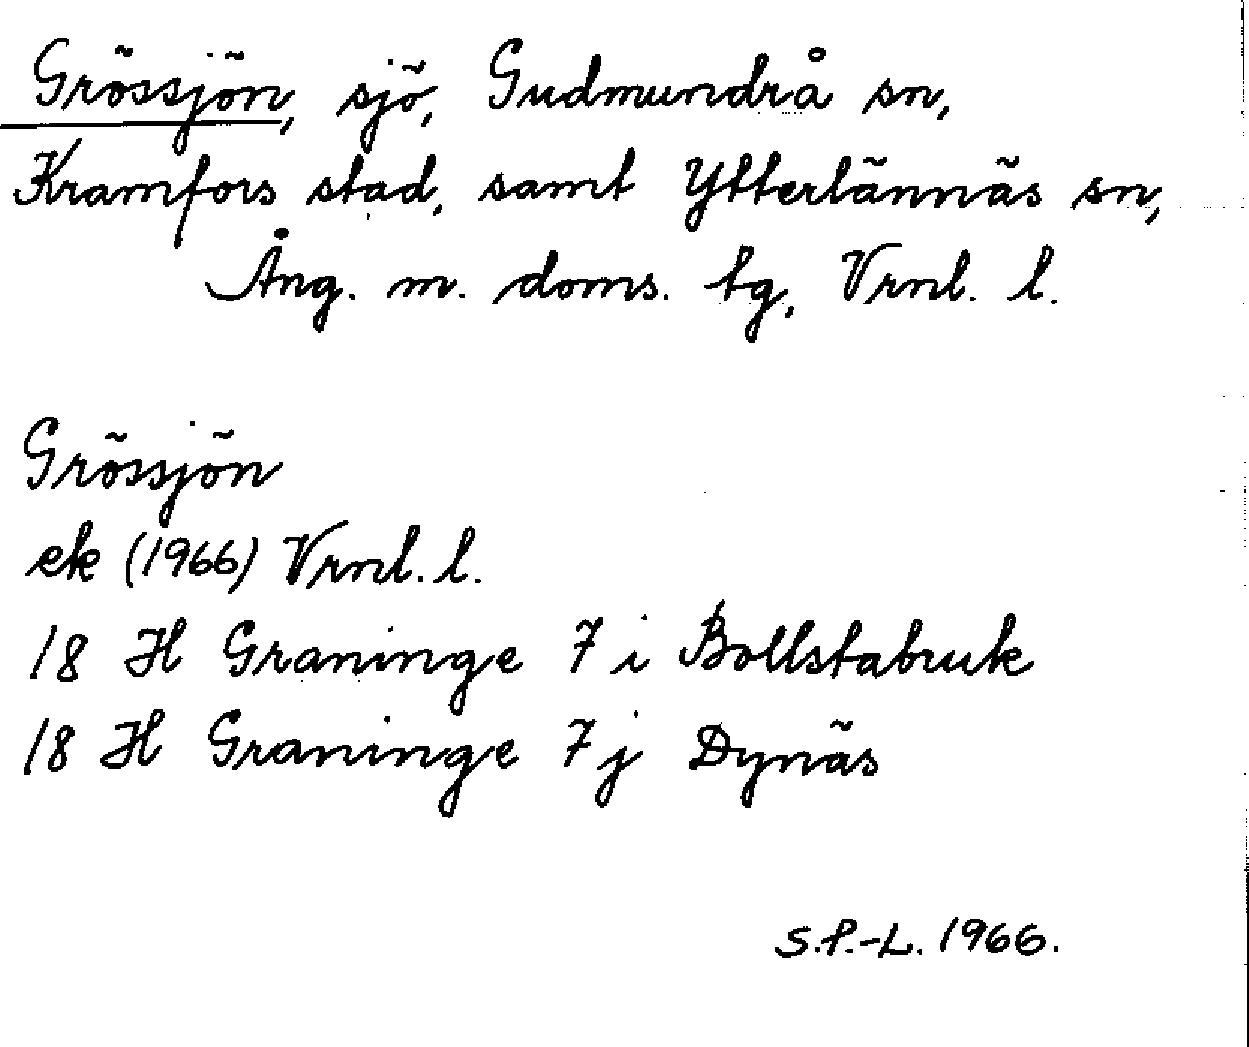 Grössjön, sjö, Gudmundrå sn,
Kramfors stad, samt Ytterlännäs sn,
Ång. m. doms. tg, Vrnl. l.
Grössjön
ek (1966) Vrnl. l.
18 H Graninge 7 i Bollstabruk
18 H Graninge 7 j Dynäs
S.P.-L. 1966.